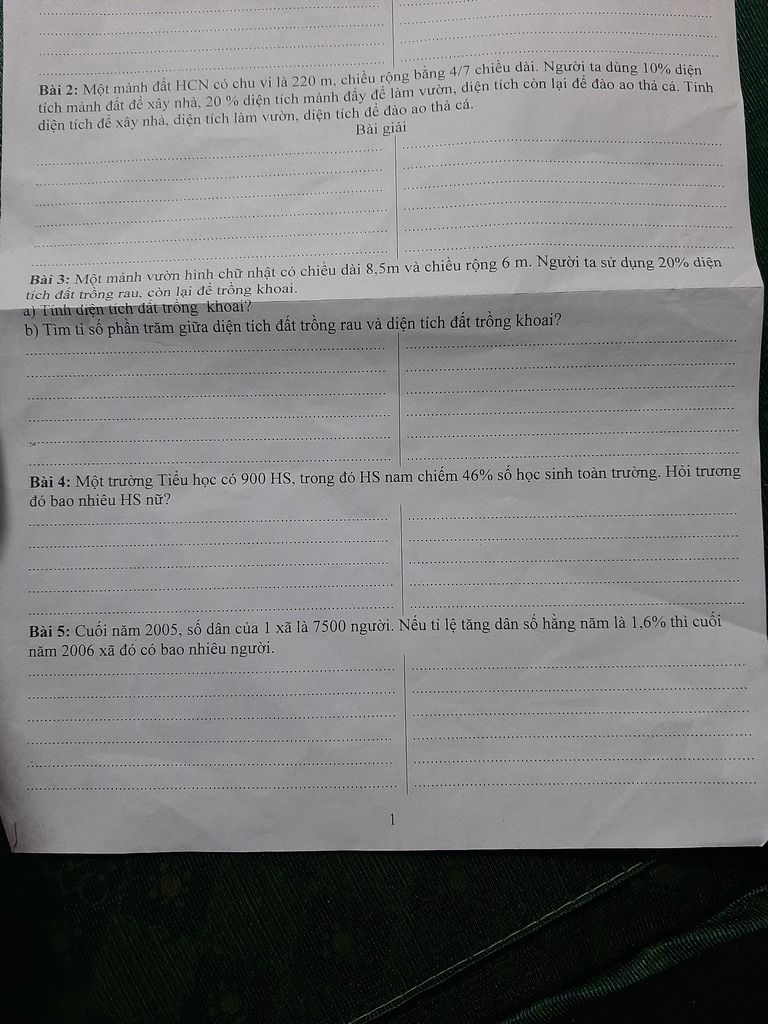 Bài 2: Một mảnh đất HCN có chu vi là 220 m, chiều rộng bằng 4/7 chiều dài. Người ta dùng 10% diện
tích mảnh đất để xây nhà, 20 % diện tích mảnh đấy để làm vườn, diện tích còn lại để đào ao thả cá. Tính
diện tích để xây nhà, diện tích làm vườn, diện tích để đào ao thả cá.
Bài giải
Bài 3: Một mảnh vườn hình chữ nhật có chiều dài 8,5m và chiều rộng 6 m. Người ta sử dụng 20% diện
tích đất trồng rau, còn lại để trồng khoai.
a) Tính diện tích đất trồng khoai?
b) Tìm tỉ số phần trăm giữa diện tích đất trồng rau và diện tích đất trồng khoai?
Bài 4: Một trường Tiểu học có 900 HS, trong đó HS nam chiếm 46% số học sinh toàn trường. Hỏi trương
đó bao nhiêu HS nữ?
Bài 5: Cuối năm 2005, số dân của 1 xã là 7500 người. Nếu tỉ lệ tăng dân số hằng năm là 1,6% thì cuối
năm 2006 xã đó có bao nhiêu người.
1